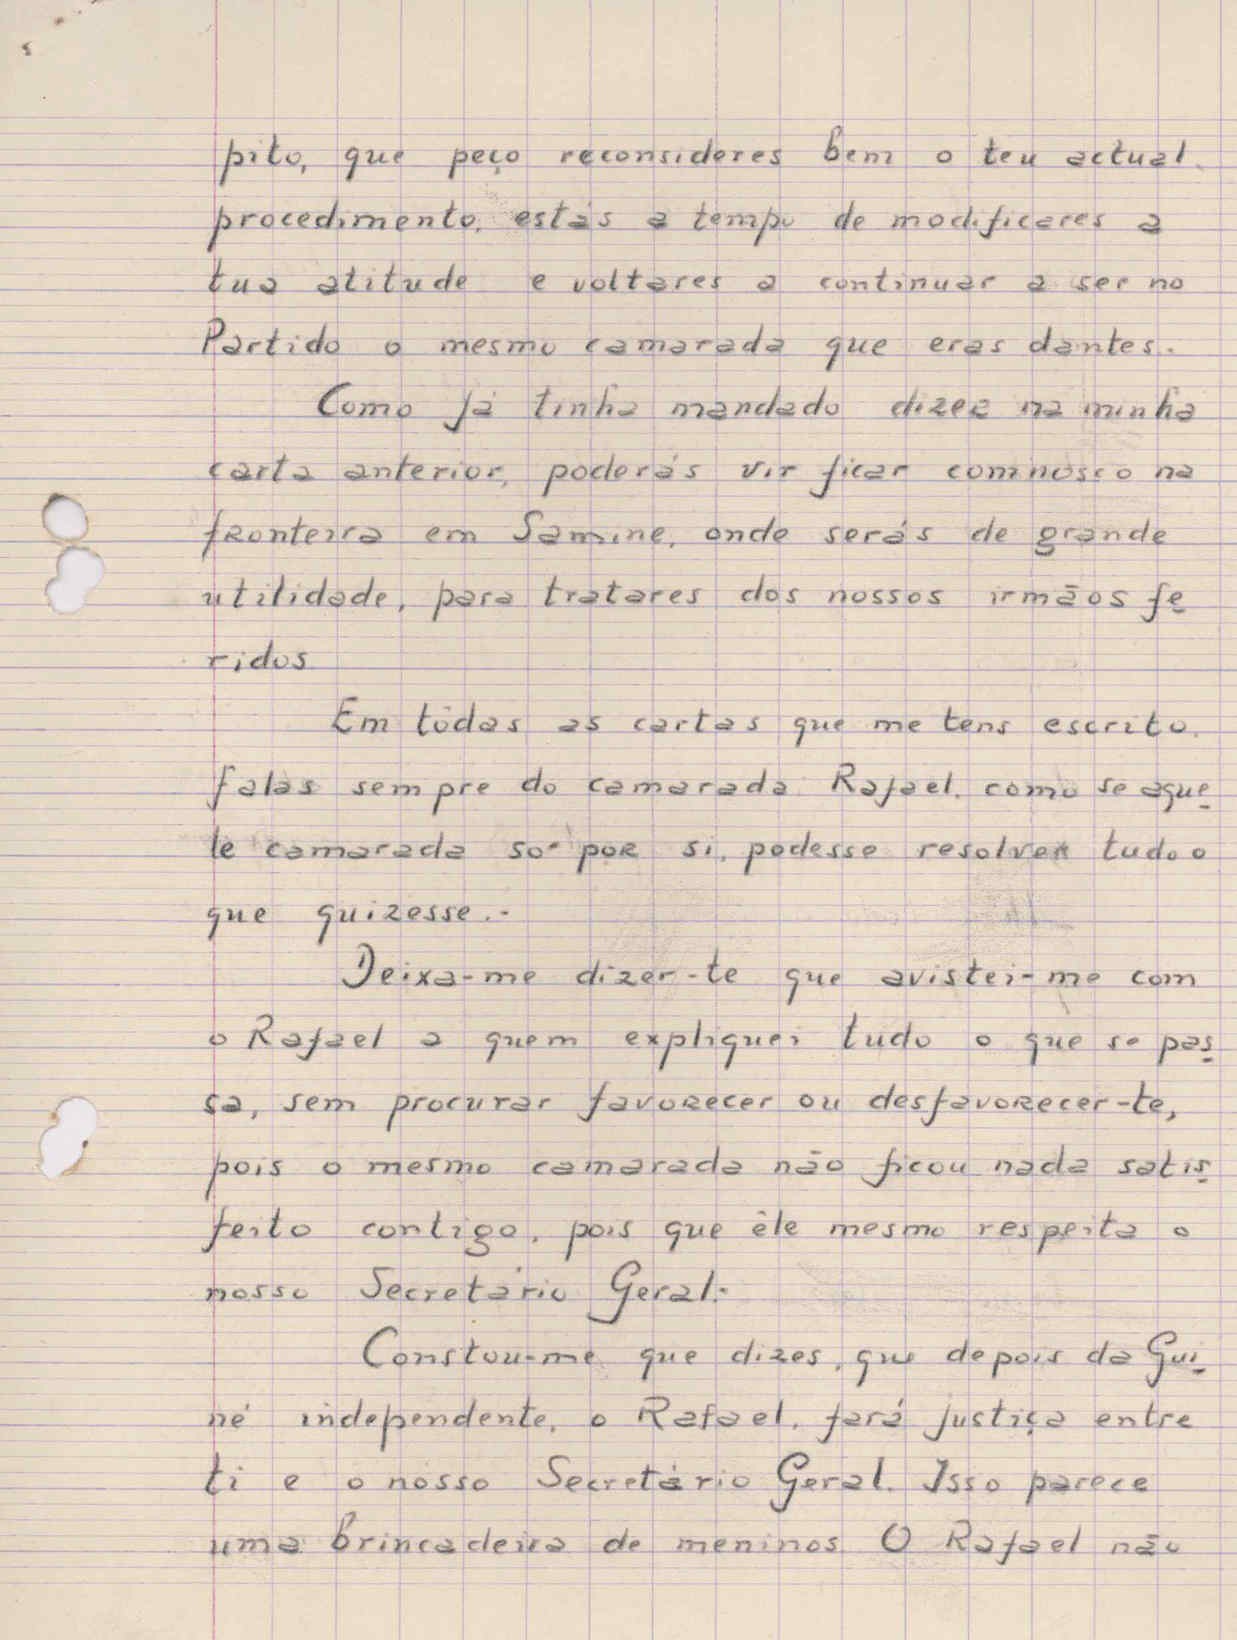 pito, que peço reconsideres bem o teu actual
procedimento, estás a tempo de modificares a
tua atitude e voltares a continuar a ser no
Partido o mesmo camarada que eras dantes.-
Como já tinha mandado dizer na minha
carta anterior, poderás vir ficar comnosco na
fronteira em Samine, onde serás de grande
utilidade, para tratares dos nossos irmãos fe
ridos
Em tôdas as cartas que me tens escrito.
falas sempre do camarada Rafael. como se aque
le camarada só por si, podesse resolver tudo o
que quizesse.-
Deixa-me dizer-te que avistei-me com
o Rafael a quem expliquei tudo o que se pas
sa, sem procurar favorecer ou desfavorecer-te,
pois o mesmo camarada não ficou nada satis
feito contigo, pois que êle mesmo respeita o
nosso Secretário Geral.-
Constou-me que dizes, que depois da Gui
né independente, o Rafael, fará justiça entre
ti e o nosso Secretário Geral. Isso parece
uma brincadeira de meninos O Rafael não